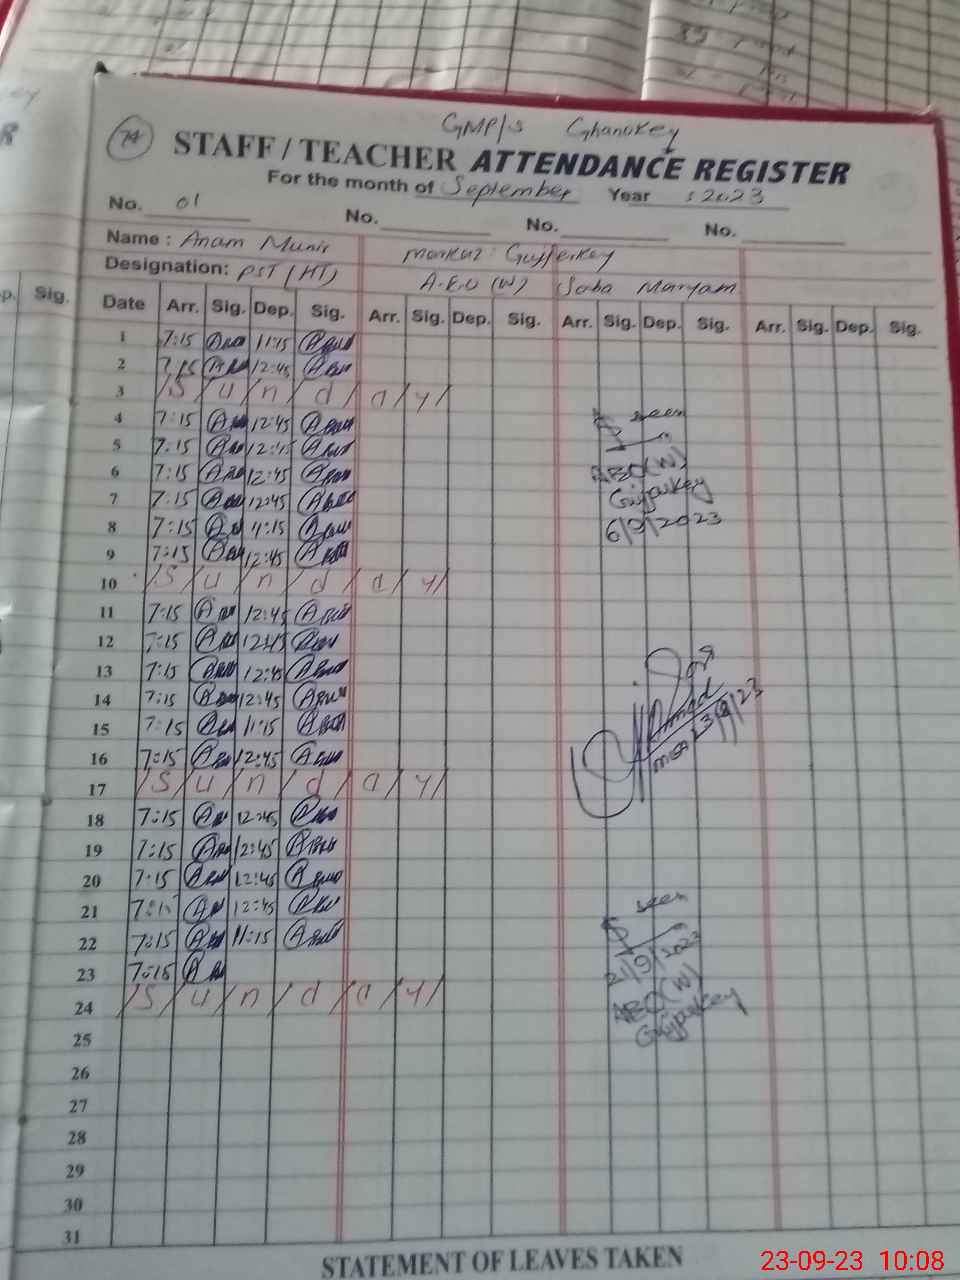 74
GMP/S Ghanokey
STAFF / TEACHER ATTENDANCE REGISTER
For the month of September Year 2023
No. 01 No. No. No.
Name : Anam Munir markaz: Gujjerkey
Designation: PST (HT) A.E.O (W) Saba Maryam
p. Sig. Date Arr. Sig. Dep. Sig. Arr. Sig. Dep. Sig. Arr. Sig. Dep. Sig. Arr. Sig. Dep. Sig.
1 7:15 11:15
2 7:15 12:45
3 S / u / n / d / a / y /
4 7:15 12:45 seen
5 7:15 12:45
6 7:15 12:45 AEO(W)
7 7:15 12:45 Gujjarkey
8 7:15 11:15 6/9/2023
9 7:15 12:45
10 S / u / n / d / a / y /
11 7:15 12:45
12 7:15 12:45
13 7:15 12:45
14 7:15 12:45
15 7:15 11:15
16 7:15 12:45
17 / S / u / n / d / a / y /
18 7:15 12:45
19 7:15 12:45
20 7:15 12:45
21 7:15 12:45 seen
22 7:15 11:15
23 7:15 21/9/2023
24 / S / u / n / d / a / y / AEO(W)
25 Gujjarkey
26
27
28
29
30
31
STATEMENT OF LEAVES TAKEN
23-09-23 10:08